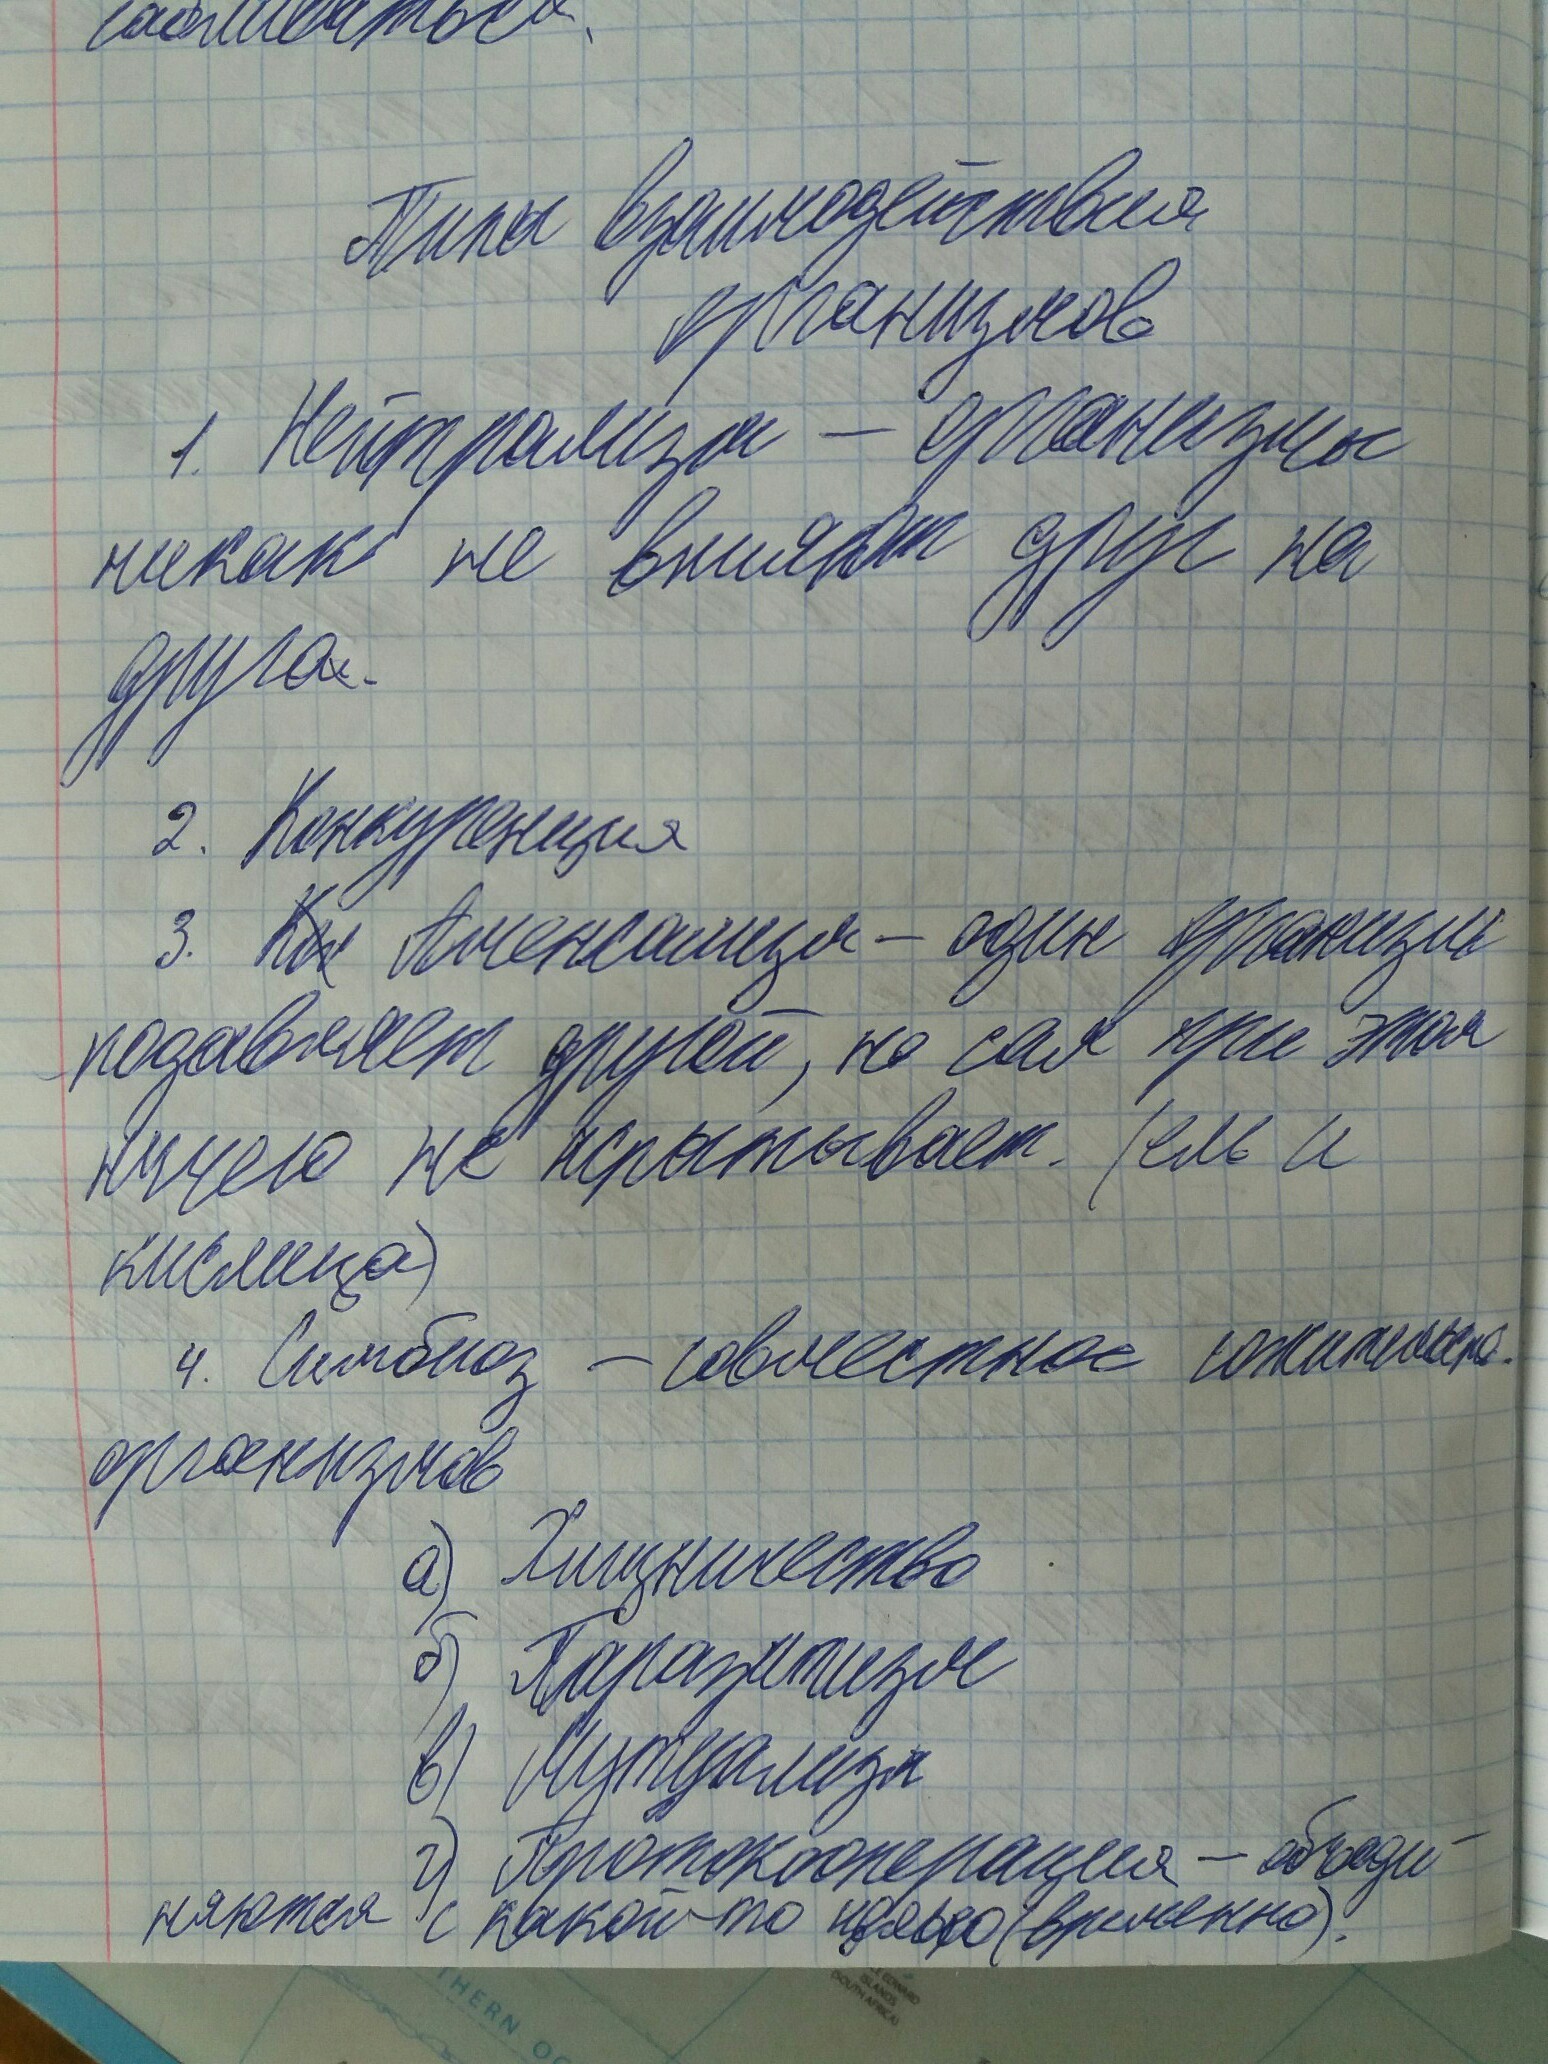 Типы взаимодействия
организмов
1. Нейтрализм — организмы
никак не влияют друг на
друга.
2. Конкуренция
3. Аменсализм — один организм
подавляет другой, но сам при этом
ничего не испытывает. (ель и
кислица)
4. Симбиоз — совместное сожительство.
организмов
а) Хищничество
б) Паразитизм
в) Мутуализм
г) Протокооперация — объеди-
няются с какой-то целью (временно).
THERN OC
EDWARD
ISLANDS
(SOUTH AFRICA)